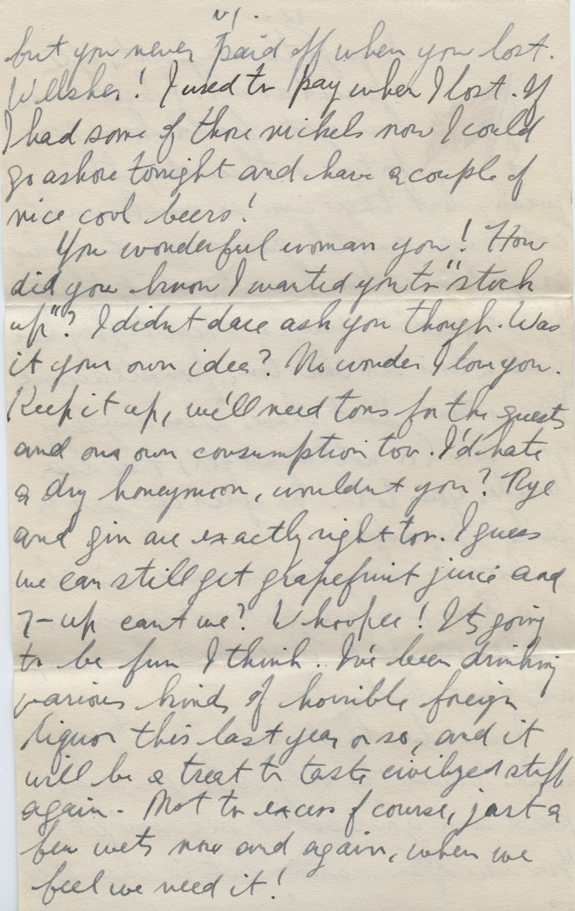 v/.
but you never paid off when you lost.
Welsher! I used to pay when I lost. If
I had some of those nickels now I could
go ashore tonight and have a couple of
nice cool beers!
You wonderful woman you! How
did you know I wanted you to "stock
up"? I didnt dare ask you though. Was
it your own idea? No wonder I love you.
Keep it up, we'll need tons for the guests
and our own consumption too. I'd hate
a dry honeymoon, wouldnt you? Rye
and gin are exactly right too. I guess
we can still get grapefruit juice and
7-up cant we? Whoopee! Its going
to be fun I think. I've been drinking
various kinds of horrible foreign
liquor this last year or so, and it
will be a treat to taste civilized stuff
again. Not to excess of course, just a
few wets now and again, when we
feel we need it!